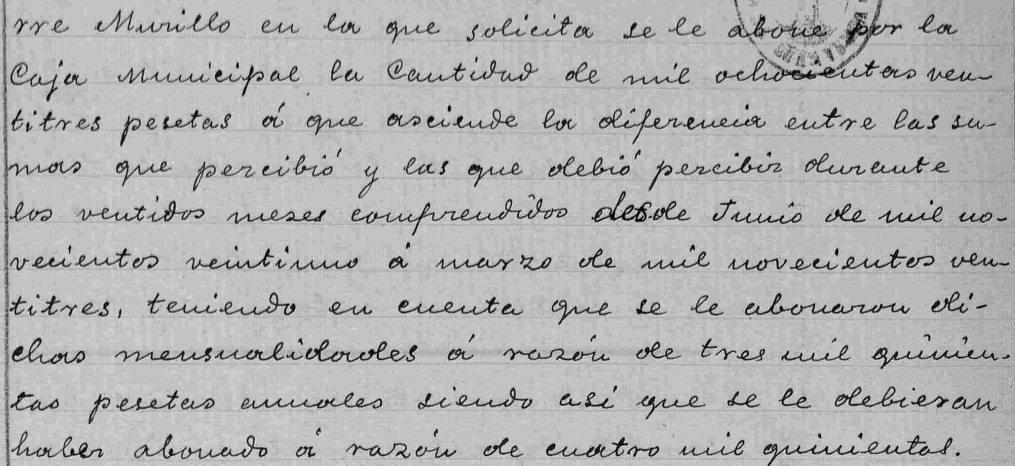 rre Murillo en la que solicita se le abone por la
Caja Municipal la Cantidad de mil ochocientas ven-
titres pesetas á que asciende la diferencia entre las su-
mas que percibió y las que debió percibir durante
los ventidos meses comprendidos desde Junio de mil no-
vecientos veintiuno á marzo de mil novecientos ven-
titres, teniendo en cuenta que se le abonaron di-
chas mensualidades á razón de tres mil quinien-
tas pesetas anuales siendo asi que se le debieran
haber abonado á razón de cuatro mil quinientas.